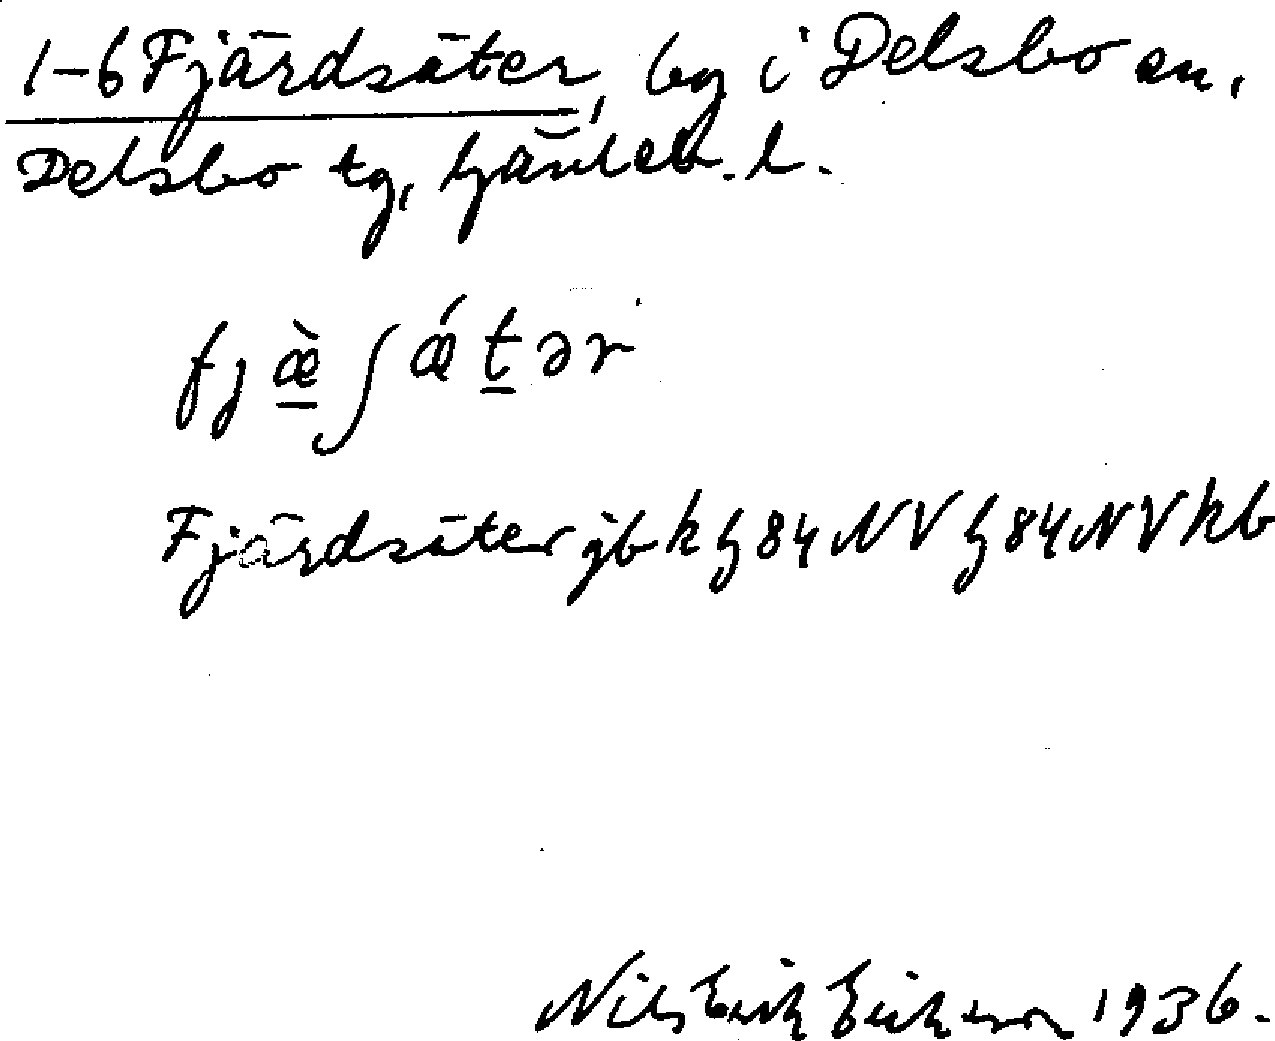 1-6 Fjärdsäter, by i Delsbo sn,
Delsbo tg, Gävleb. l.
fjæ̱̀ʃǽṯər
Fjärdsäter jb k h 84 NV h 84 NV kb
Nils Erik Erikson 1936.